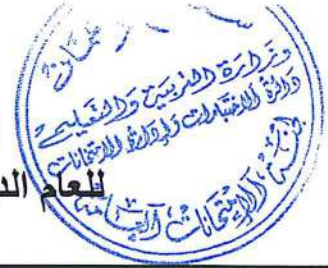 عمان
وزارة التربية والتعليم
دائرة الاختبارات وإدارة الامتحانات
لجنة الامتحانات العامة
للعام الد